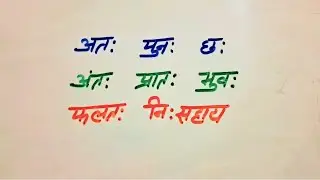 अतः पुनः छः
अंतः प्रातः भुवः
फलतः निःसहाय